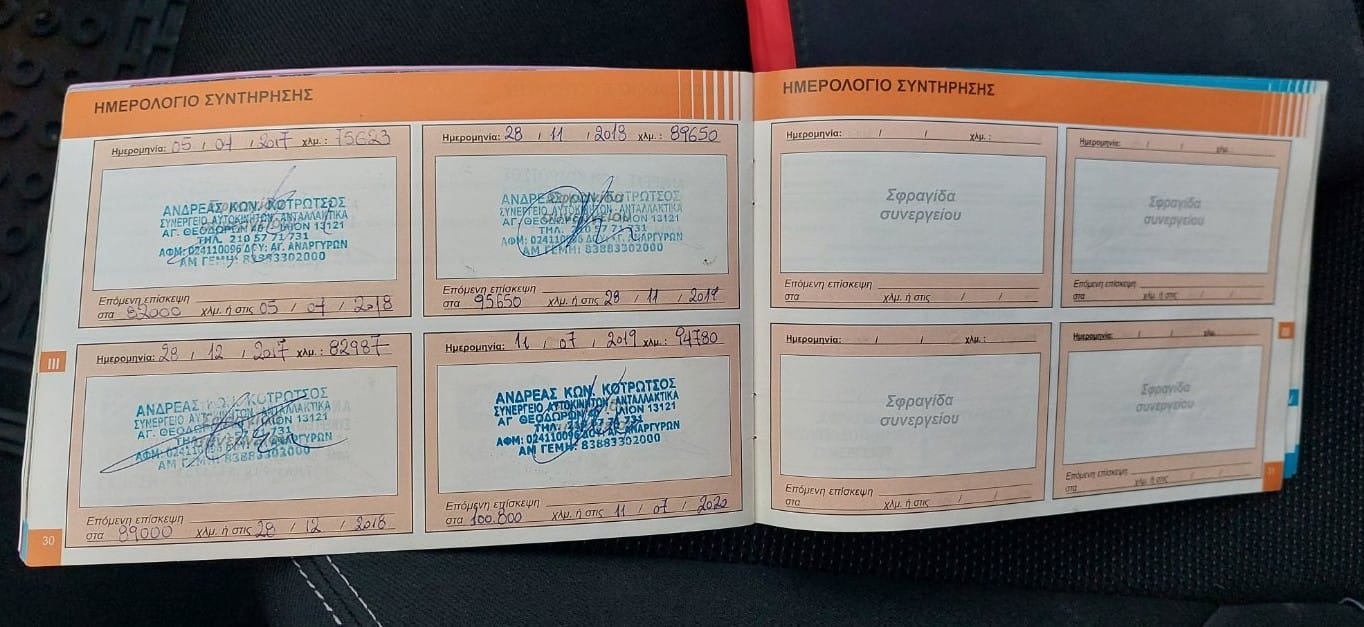 ΗΜΕΡΟΛΟΓΙΟ ΣΥΝΤΗΡΗΣΗΣ
Ημερομηνία: 05 / 07 / 2017 χλμ.: 75623
ΑΝΔΡΕΑΣ ΚΩΝ. ΚΟΤΡΩΤΣΟΣ
ΣΥΝΕΡΓΕΙΟ ΑΥΤΟΚΙΝΗΤΩΝ, ΑΝΤΑΛΛΑΚΤΙΚΑ
ΑΓ. ΘΕΟΔΩΡΩΝ ΙΛΙΟΝ 13121
ΤΗΛ. 210 57 71 731
ΑΦΜ: 024110096 ΔΟΥ: ΑΓ. ΑΝΑΡΓΥΡΩΝ
ΑΜ ΓΕΜΗ: 83883302000
Επόμενη επίσκεψη
στα 82000 χλμ. ή στις 05 / 07 / 2018
Ημερομηνία: 28 / 12 / 2017 χλμ.: 82987
ΑΝΔΡΕΑΣ ΚΩΝ. ΚΟΤΡΩΤΣΟΣ
ΣΥΝΕΡΓΕΙΟ ΑΥΤΟΚΙΝΗΤΩΝ, ΑΝΤΑΛΛΑΚΤΙΚΑ
ΑΓ. ΘΕΟΔΩΡΩΝ ΙΛΙΟΝ 13121
ΤΗΛ. 731
ΑΦΜ: 024110096 ΔΟΥ: ΑΓ. ΑΝΑΡΓΥΡΩΝ
ΑΜ ΓΕΜΗ: 83883302000
Επόμενη επίσκεψη
στα 89000 χλμ. ή στις 28 / 12 / 2018
III
30
Ημερομηνία: 28 / 11 / 2018 χλμ.: 89650
ΑΝΔΡΕΑΣ ΚΩΝ. ΚΟΤΡΩΤΣΟΣ
ΣΥΝΕΡΓΕΙΟ ΑΥΤΟΚΙΝΗΤΩΝ, ΑΝΤΑΛΛΑΚΤΙΚΑ
ΑΓ. ΘΕΟΔΩΡΩΝ ΙΛΙΟΝ 13121
ΤΗΛ. 210 57 71 731
ΑΦΜ: 024110096 ΔΟΥ: ΑΓ. ΑΝΑΡΓΥΡΩΝ
ΑΜ ΓΕΜΗ: 83883302000
Επόμενη επίσκεψη
στα 95650 χλμ. ή στις 28 / 11 / 2019
Ημερομηνία: 11 / 07 / 2019 χλμ.: 94780
ΑΝΔΡΕΑΣ ΚΩΝ. ΚΟΤΡΩΤΣΟΣ
ΣΥΝΕΡΓΕΙΟ ΑΥΤΟΚΙΝΗΤΩΝ, ΑΝΤΑΛΛΑΚΤΙΚΑ
ΑΓ. ΘΕΟΔΩΡΩΝ ΙΛΙΟΝ 13121
ΤΗΛ. 210 57 71 731
ΑΦΜ: 024110096 ΔΟΥ: ΑΓ. ΑΝΑΡΓΥΡΩΝ
ΑΜ ΓΕΜΗ: 83883302000
Επόμενη επίσκεψη
στα 100.800 χλμ. ή στις 11 / 07 / 2020
ΗΜΕΡΟΛΟΓΙΟ ΣΥΝΤΗΡΗΣΗΣ
Ημερομηνία: / / χλμ.:
Σφραγίδα
συνεργείου
Επόμενη επίσκεψη
στα χλμ. ή στις / /
Ημερομηνία: / / χλμ.:
Σφραγίδα
συνεργείου
Επόμενη επίσκεψη
στα χλμ. ή στις / /
Ημερομηνία: / / χλμ.:
Σφραγίδα
συνεργείου
Επόμενη επίσκεψη
στα χλμ. ή στις / /
Ημερομηνία: / / χλμ.
Σφραγίδα
συνεργείου
Επόμενη επίσκεψη
στα χλμ. ή στις / /
III
31